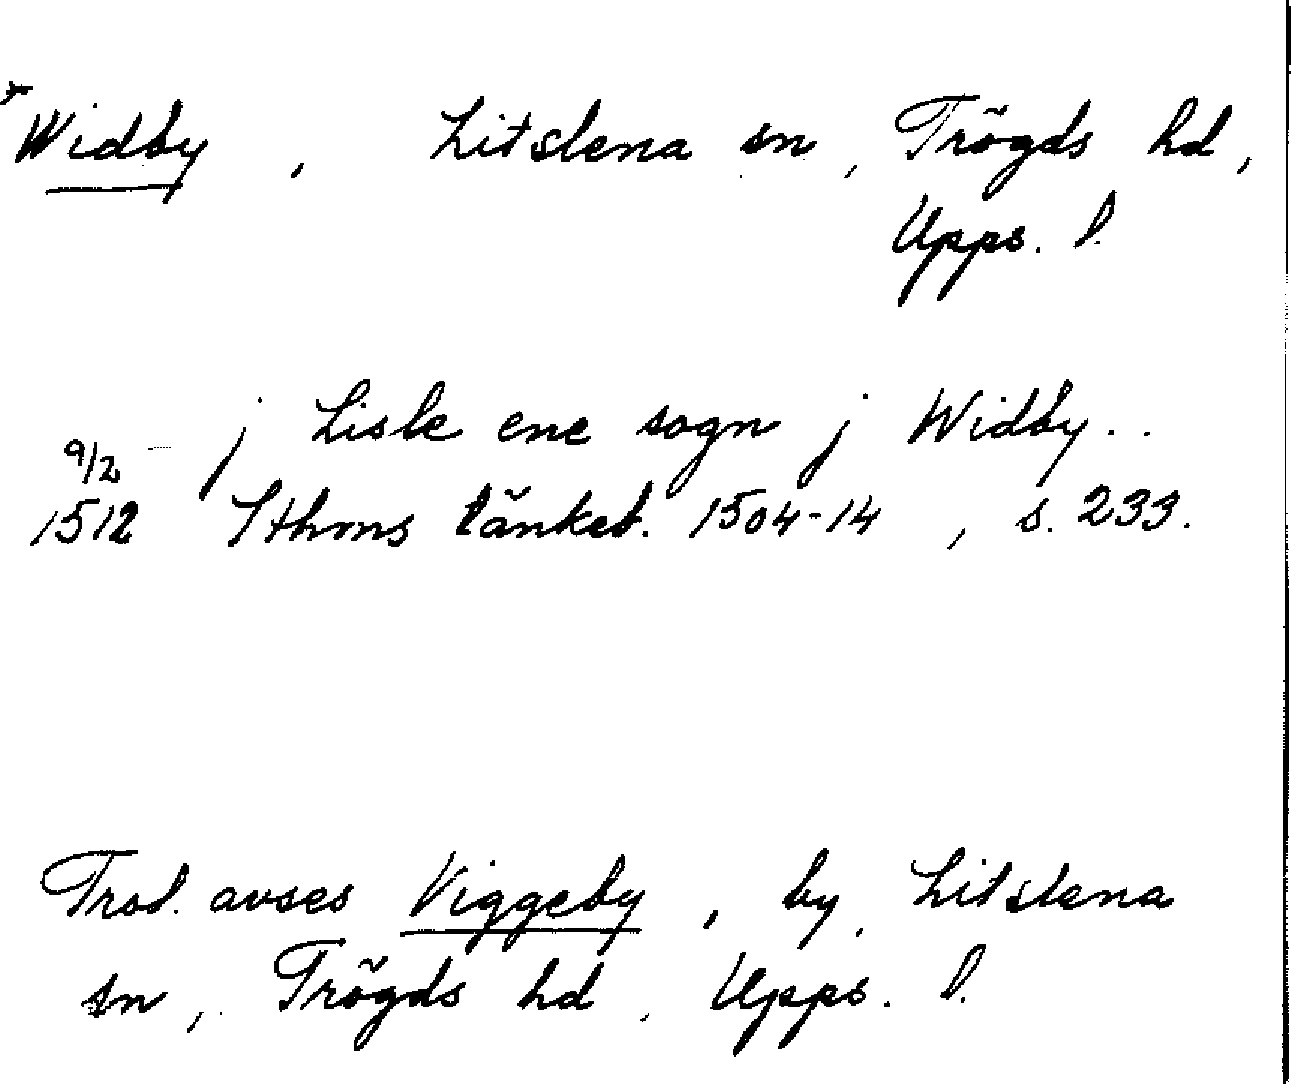 Widby, Litslena sn, Trögds hd,
Upps. l.
j Lisle ene sogn j Widby..
9/2
1512 Sthms tänkeb. 1504-14, s. 233.
Trol. avses Viggeby, by, Litslena
sn, Trögds hd, Upps. l.